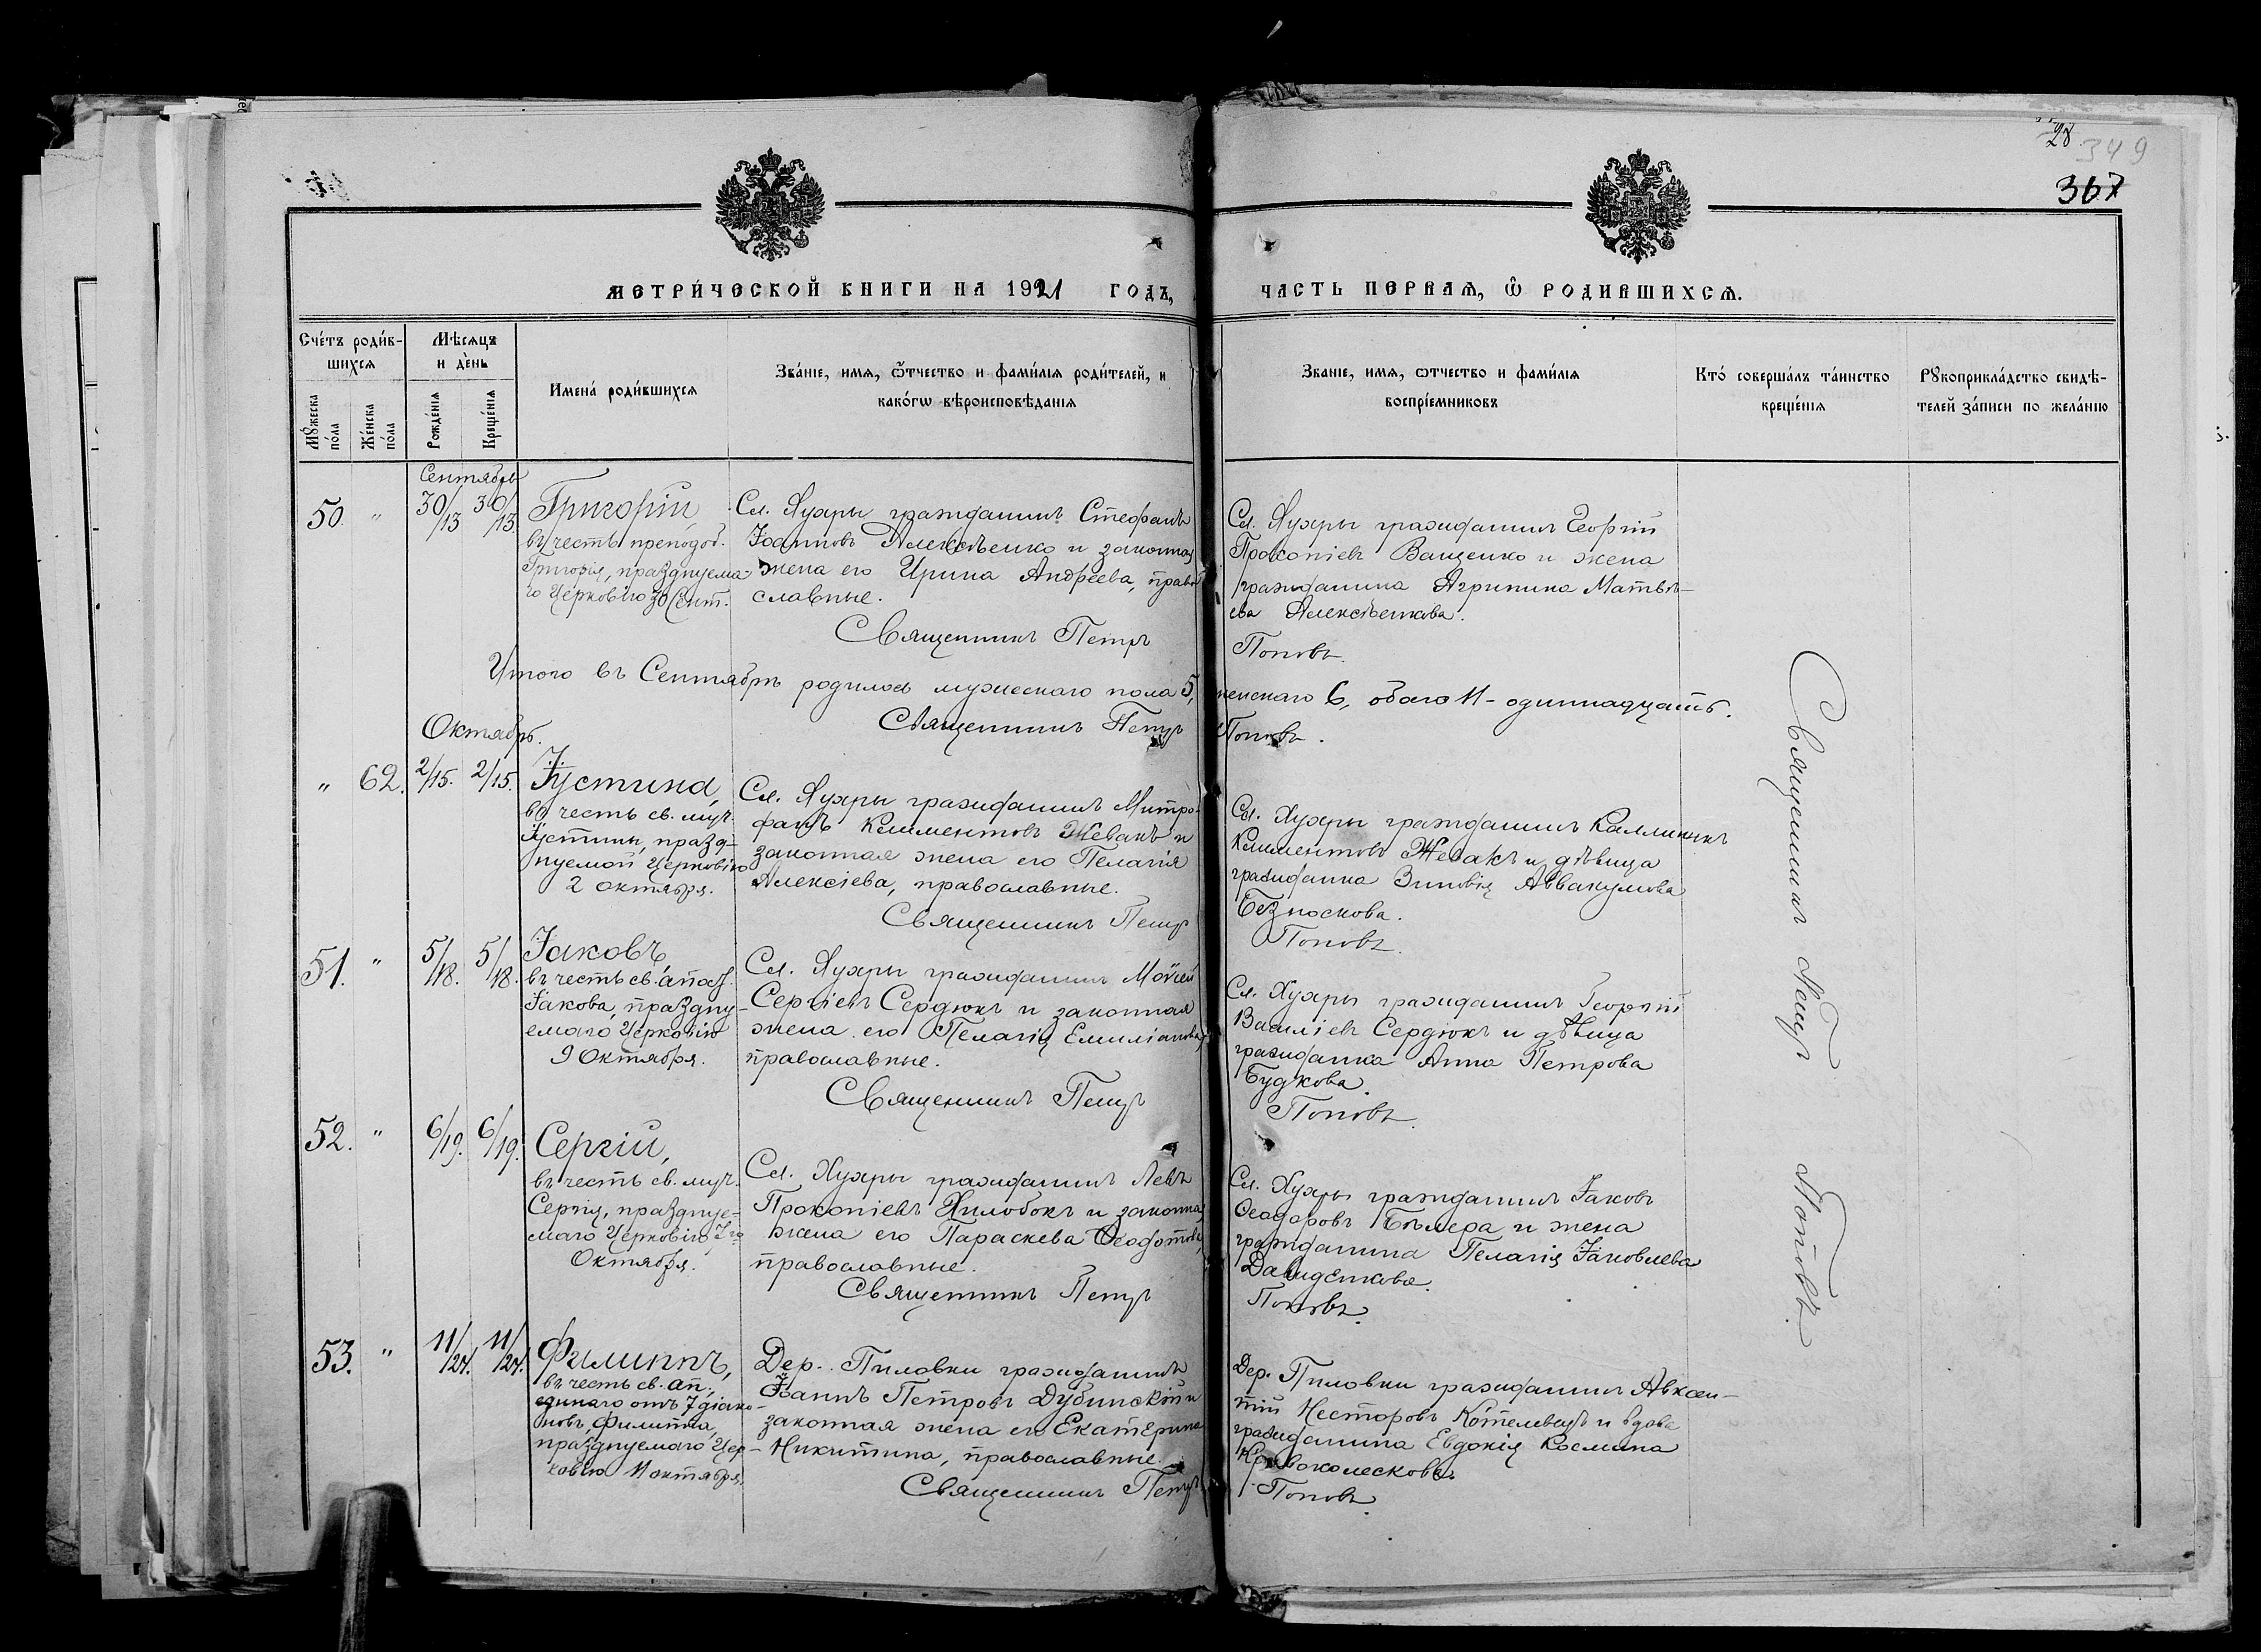 28
349
367
МЕТРИ́ЧЕСКОЙ КНИГИ НА 1921 ГОДЪ,
ЧАСТЬ ПЕРВАѦ, Ѿ РОДИВШИХСѦ.
Сче́тъ роди́в-
шихсѧ
Мꙋ́жеска
по́ла
Же́нска
по́ла
Мѣ́сѧцъ
и де́нь
Рожде́нїѧ
Креще́нїѧ
Имена́ роди́вшихсѧ
Зва́нїе, имѧ, ѻ҆́тчество и фами́лїѧ роди́телей, и
како́гѡ вѣроисповѣ́данїѧ
Зва́нїе, имѧ, ѻтчество и фами́лїѧ
воспрїемниковъ
Кто́ соверша́лъ та́инство
креще́нїѧ
Рꙋкоприкла́дство свидѣ́-
телей за́писи по жела́нїю
Сентябрь
50. " 30/13 30/13.
Григорій,
въ честь преподоб.
Григорія, празднуема-
го Церковію 30 Сент.
Сл. Хухры гражданинъ Стефанъ
Іоанновъ Алексѣенко и законная
жена его Ирина Андреева, право
славные.
Священникъ Петръ
Сл. Хухры гражданинъ Георгій
Прокопіевъ Ващенко и жена
гражданина Агрипина Матвѣ-
ева Алексѣенкова.
Поповъ.
Итого въ Сентябрѣ родилось мужескаго пола 5, женскаго 6, обоего 11 - одиннадцать.
Священникъ Петръ Поповъ.
Октябрь.
" 62. 2/15. 2/15.
Іустина,
въ честь св. муч.
Іустины, празд-
нуемой Церковію
2 октября.
Сл. Хухры гражданинъ Митро-
фанъ Климентовъ Жевакъ и
законная жена его Пелагія
Алексіева, православные.
Священникъ Петръ
Сл. Хухры гражданинъ Каллиникъ
Климентовъ Жевакъ и дѣвица
гражданка Зиновія Аввакумова
Безноскова.
Поповъ.
51. " 5/18. 5/18.
Іаковъ,
въ честь св. апос.
Іакова, праздну-
емаго Церковію
9 Октября.
Сл. Хухры гражданинъ Моѵсей
Сергіевъ Сердюкъ и законная
жена его Пелагія Емиліанова,
православные.
Священникъ Петръ
Сл. Хухры гражданинъ Георгій
Василіевъ Сердюкъ и дѣвица
гражданка Анна Петрова
Будкова.
Поповъ.
52. " 6/19. 6/19.
Сергій,
въ честь св. муч.
Сергія, праздуе-
маго Церковію 7го
Октября.
Сл. Хухры гражданинъ Левъ
Прокопіевъ Хилобокъ и законная
жена его Параскева Ѳеодотова,
православные.
Священникъ Петръ
Сл. Хухры гражданинъ Іаковъ
Ѳеодоровъ и жена
гражданина Пелагія Іаковлева
Давиденкова.
Поповъ.
53. " 11/24. 11/24.
Филиппъ,
въ честь св. ап.,
единаго отъ 7 діако-
новъ, Филиппа,
празднуемаго Цер-
ковію 11 октября.
Дер. Пиловки гражданинъ
Іоаннъ Петровъ Дубинскій и
законная жена его Екатерина
Никитина, православные.
Священникъ Петръ
Дер. Пиловки гражданинъ Авксен-
тій Несторовъ Котелевецъ и вдова
гражданина Евдокія Космина
Кривоколескова.
Поповъ.
Священникъ Петръ Поповъ.